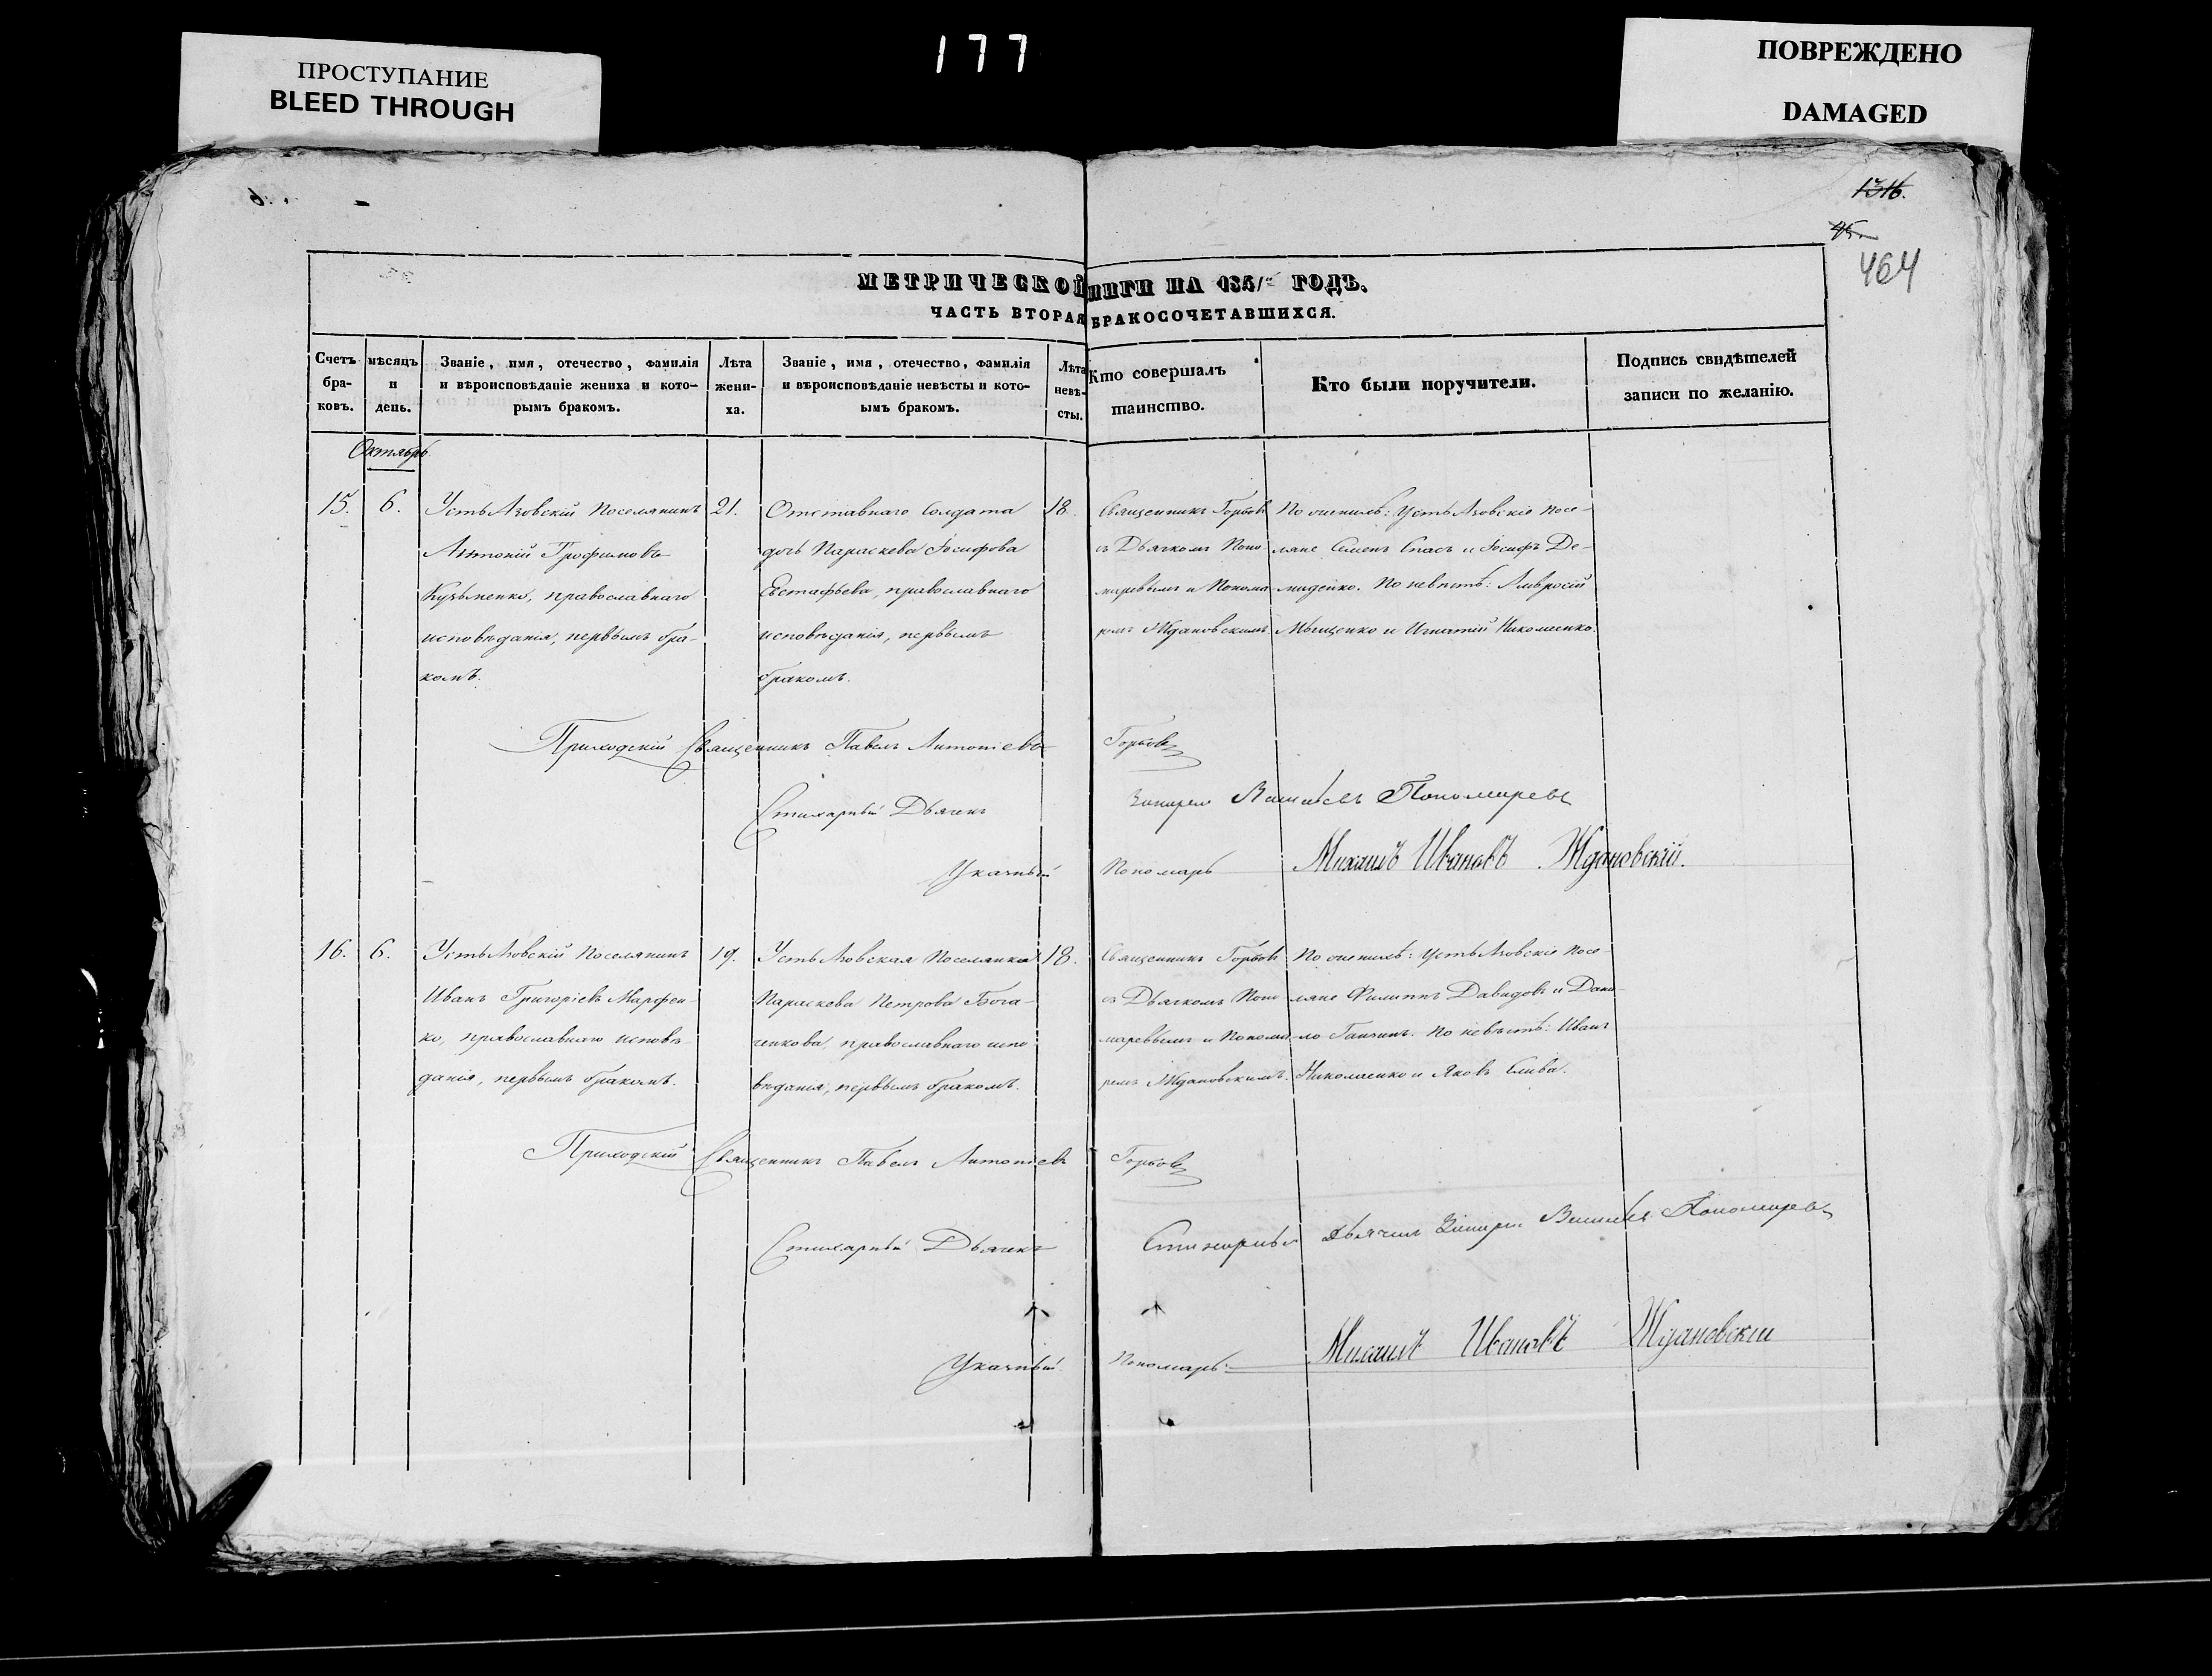 ПРОСТУПАНИЕ
BLEED THROUGH
177
ПОВРЕЖДЕНО
DAMAGED
1316.
464
МЕТРИЧЕСКОЙ
НИГИ НА 1851 ГОДЪ.
ЧАСТЬ ВТОРАЯ
БРАКОСОЧЕТАВШИХСЯ.
Счетъ
бра-
ковъ.
мѣсяцъ
и
день.
Званіе, имя, отечество, фамилія
и вѣроисповѣданіе жениха и кото-
рымъ бракомъ.
Лѣта
жени-
ха.
Званіе, имя, отечество, фамилія
и вѣроисповѣданіе невѣсты и кото-
ымъ бракомъ.
Лѣта
невѣ-
сты.
Кто совершалъ
таинство.
Кто были поручители.
Подпись свидѣтелей
записи по желанію.
Октябрь
15.
6.
Поселянинъ
Антоній Трофимовъ
Кузьменко, православнаго
исповѣданія, первымъ бра-
комъ.
21.
Отставнаго Солдата
дочь Параскева Іосифова
Евстафьева, православнаго
исповѣданія, первымъ
бракомъ.
18.
Священникъ Горбовъ
съ Дьячкомъ Поно-
маревымъ и Понома-
ремъ Ждановскимъ.
По женихѣ: Посе-
ляне Семенъ Спасъ и Іосифъ Де-
миденко. По невѣстѣ: Амвросій
Мищенко и Игнатій Николаенко.
Приходскій Священникъ Павелъ Антоніевъ Горбовъ
Стихарный Дьячекъ Пономаревъ
Указный Пономарь Михаилъ Ивановъ Ждановскій.
16.
6.
Поселянинъ
Иванъ Григоріевъ Марфен-
ко, православнаго исповѣ-
данія, первымъ бракомъ.
19.
Поселянка
Параскева Петрова Бога-
ченкова, православнаго испо-
вѣданія, первымъ бракомъ.
18.
Священникъ Горбовъ
съ Дьячкомъ Поно-
маревымъ и Понома-
ремъ Ждановскимъ.
По женихѣ: Посе-
ляне Филиппъ Давидовъ и Дани-
ло По невѣстѣ: Иванъ
Николаенко и Яковъ Слива.
Приходскій Священникъ Павелъ Антоніевъ Горбовъ
Стихарный Дьячекъ
Стихарный Дьячекъ Пономаревъ
Указный Пономарь Михаилъ Ивановъ Ждановскій